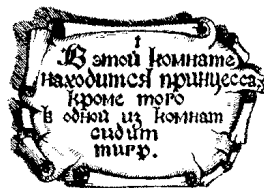 1
В этой комнате
находится принцесса;
кроме того
в одной из комнат
сидит
тигр.